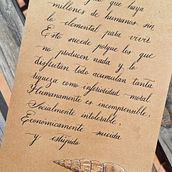 que haya
millones de humanos sin
lo elemental para vivir.
Esto sucede porque los que
no producen nada y lo
disfrutan todo acumulan tanta
riqueza como inferioridad moral.
Humanamente es incomprensible.
Socialmente intolerable.
Económicamente suicida
y estúpido